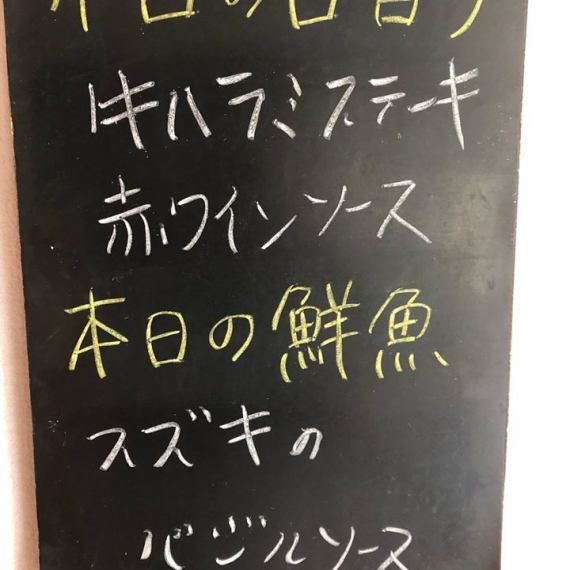 本日の日替り
牛ハラミステーキ
赤ワインソース
本日の鮮魚
スズキの
バジルソース